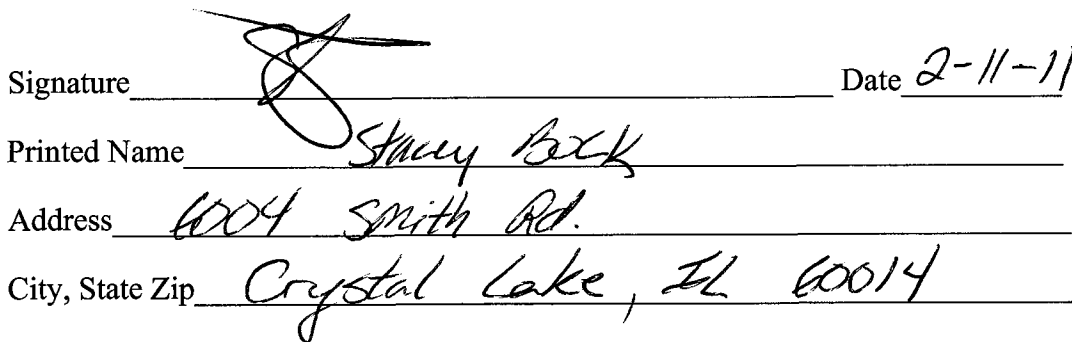 Signature Date 2-11-11
Printed Name Stacey Bock
Address 6004 Smith Rd.
City, State Zip Crystal Lake, IL 60014